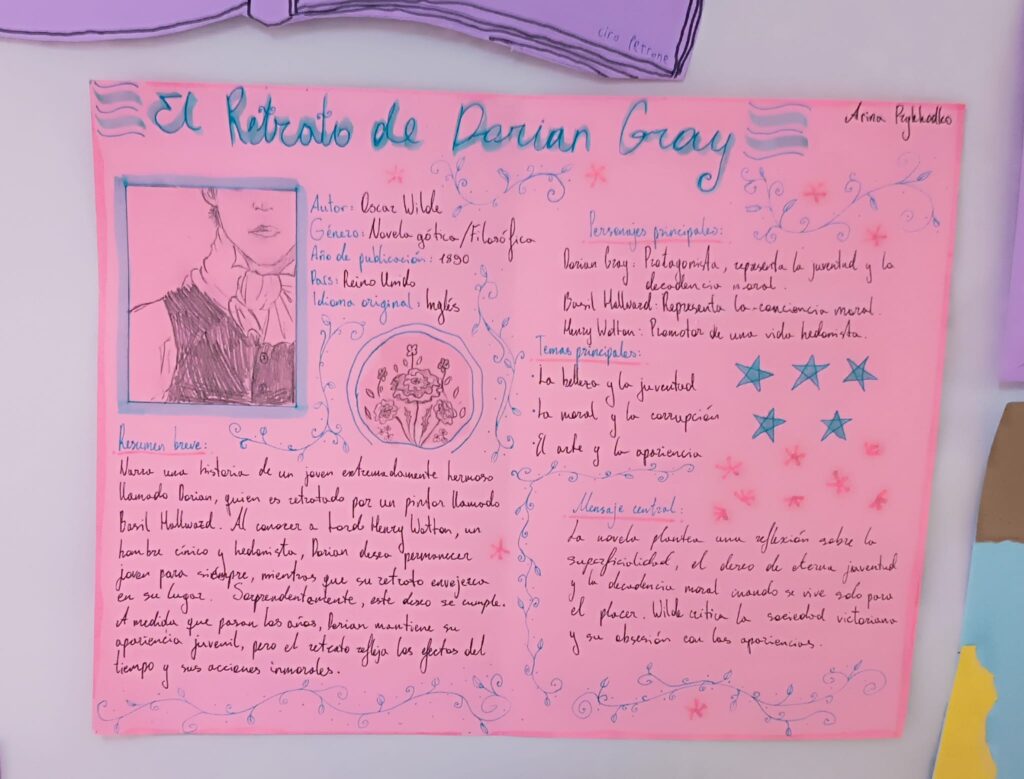 Ciro Perrone
El Retrato de Dorian Gray
Arina Prykhodko
Autor: Oscar Wilde
Género: Novela gótica/Filosófica
Año de publicación: 1890
País: Reino Unido
Idioma original: Inglés
Resumen breve:
Narra una historia de un joven extremadamente hermoso
llamado Dorian, quien es retratado por un pintor llamado
Basil Hallward. Al conocer a Lord Henry Wotton, un
hombre cínico y hedonista, Dorian desea permanecer
joven para siempre, mientras que su retrato envejezca
en su lugar. Sorprendentamente, este deseo se cumple.
A medida que pasan los años, Dorian mantiene su
apariencia juvenil, pero el retrato refleja los efectos del
tiempo y sus acciones inmorales.
Personajes principales:
Dorian Gray: Protagonista, representa la juventud y la
decadencia moral.
Basil Hallward: Representa la conciencia moral.
Henry Wotton: Promotor de una vida hedonista.
Temas principales:
· La belleza y la juventud
· La moral y la corrupción
· El arte y la apariencia
Mensaje central:
La novela plantea una reflexión sobre la
superficialidad, el deseo de eterna juventud
y la decadencia moral cuando se vive solo para
el placer. Wilde critica la sociedad victoriana
y su obsesión con las apariencias.